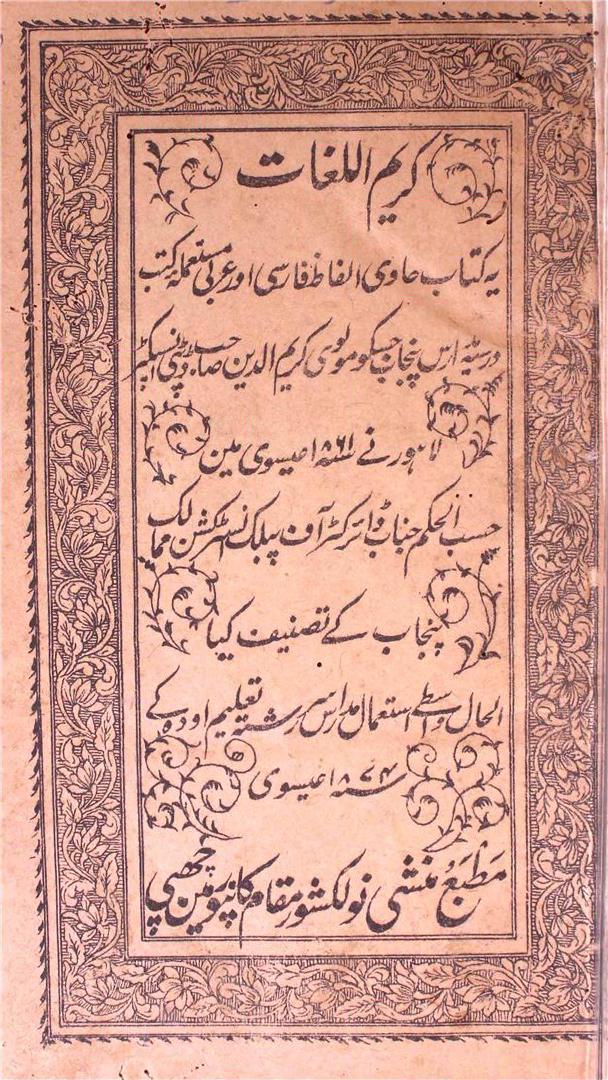 کریم اللغات
یہ کتاب حاوی الفاظ فارسی اور عربی مستعملہ کتب
درسیہ مدارس پنجاب جسکو مولوی کریم الدین صاحب ڈپٹی انسپکٹر
لاہور نے ۱۸۶۱ عیسوی مین
حسب الحکم جناب ڈائرکٹر آف پبلک انسٹرکشن ممالک
پنجاب کے تصنیف کیا
الحال واسطے استعمال مدارس سررشتہ تعلیم اودہ کے
۱۸۷۴ عیسوی
مطبع منشی نولکشور مقام کانپور مین چھپی